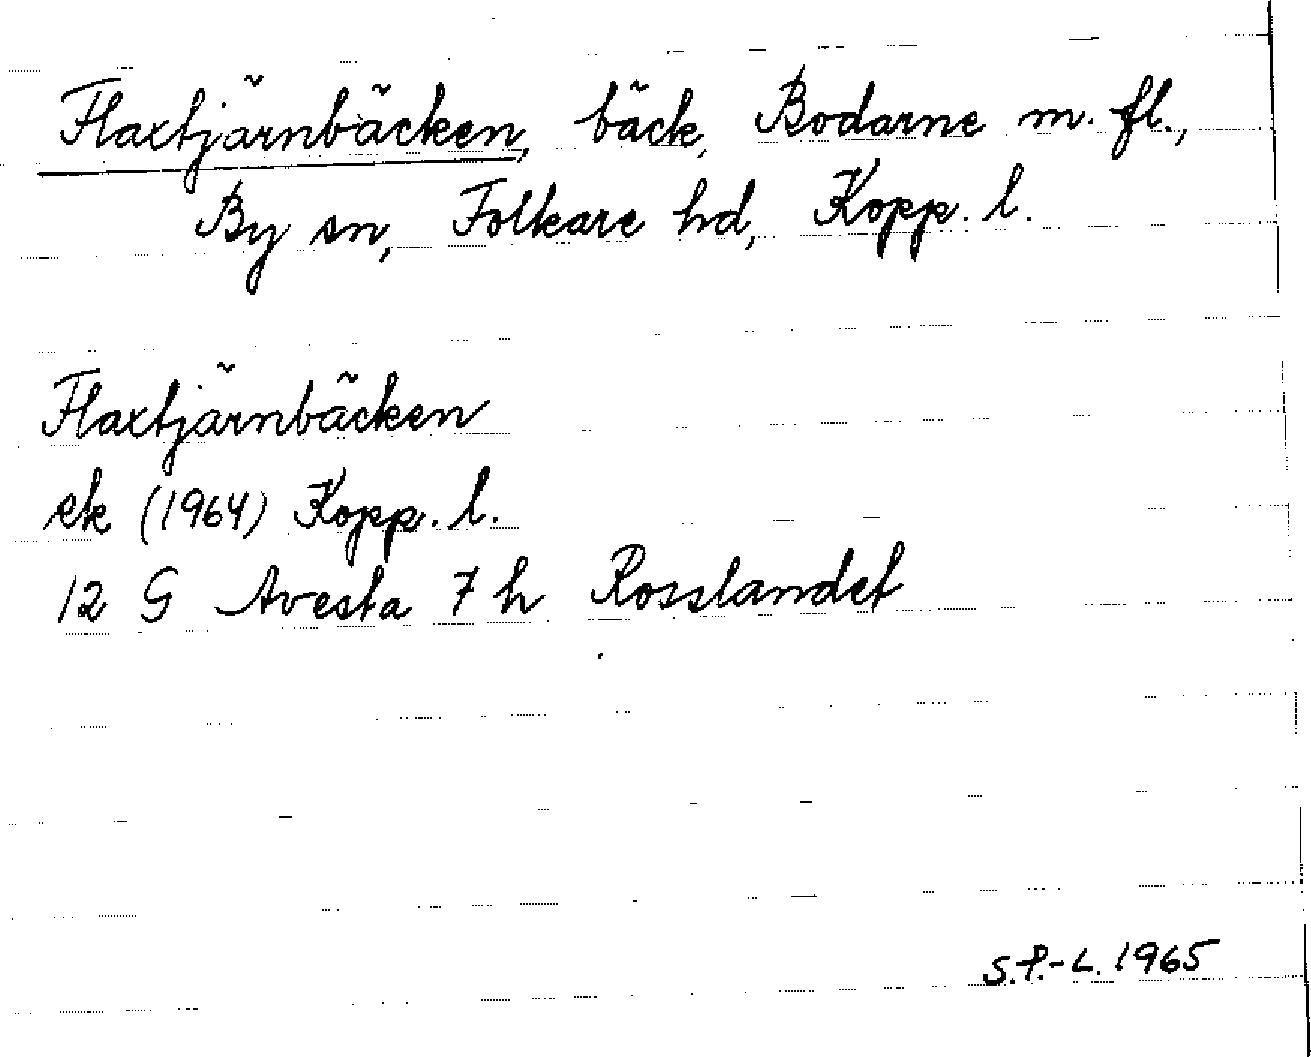 Flaxtjärnbäcken, bäck, Bodarne m. fl.,
By sn, Folkare hd, Kopp. l.
Flaxtjärnbäcken
ek (1964) Kopp. l.
12 G Avesta 7 h Rosslandet
S.P.-L. 1965